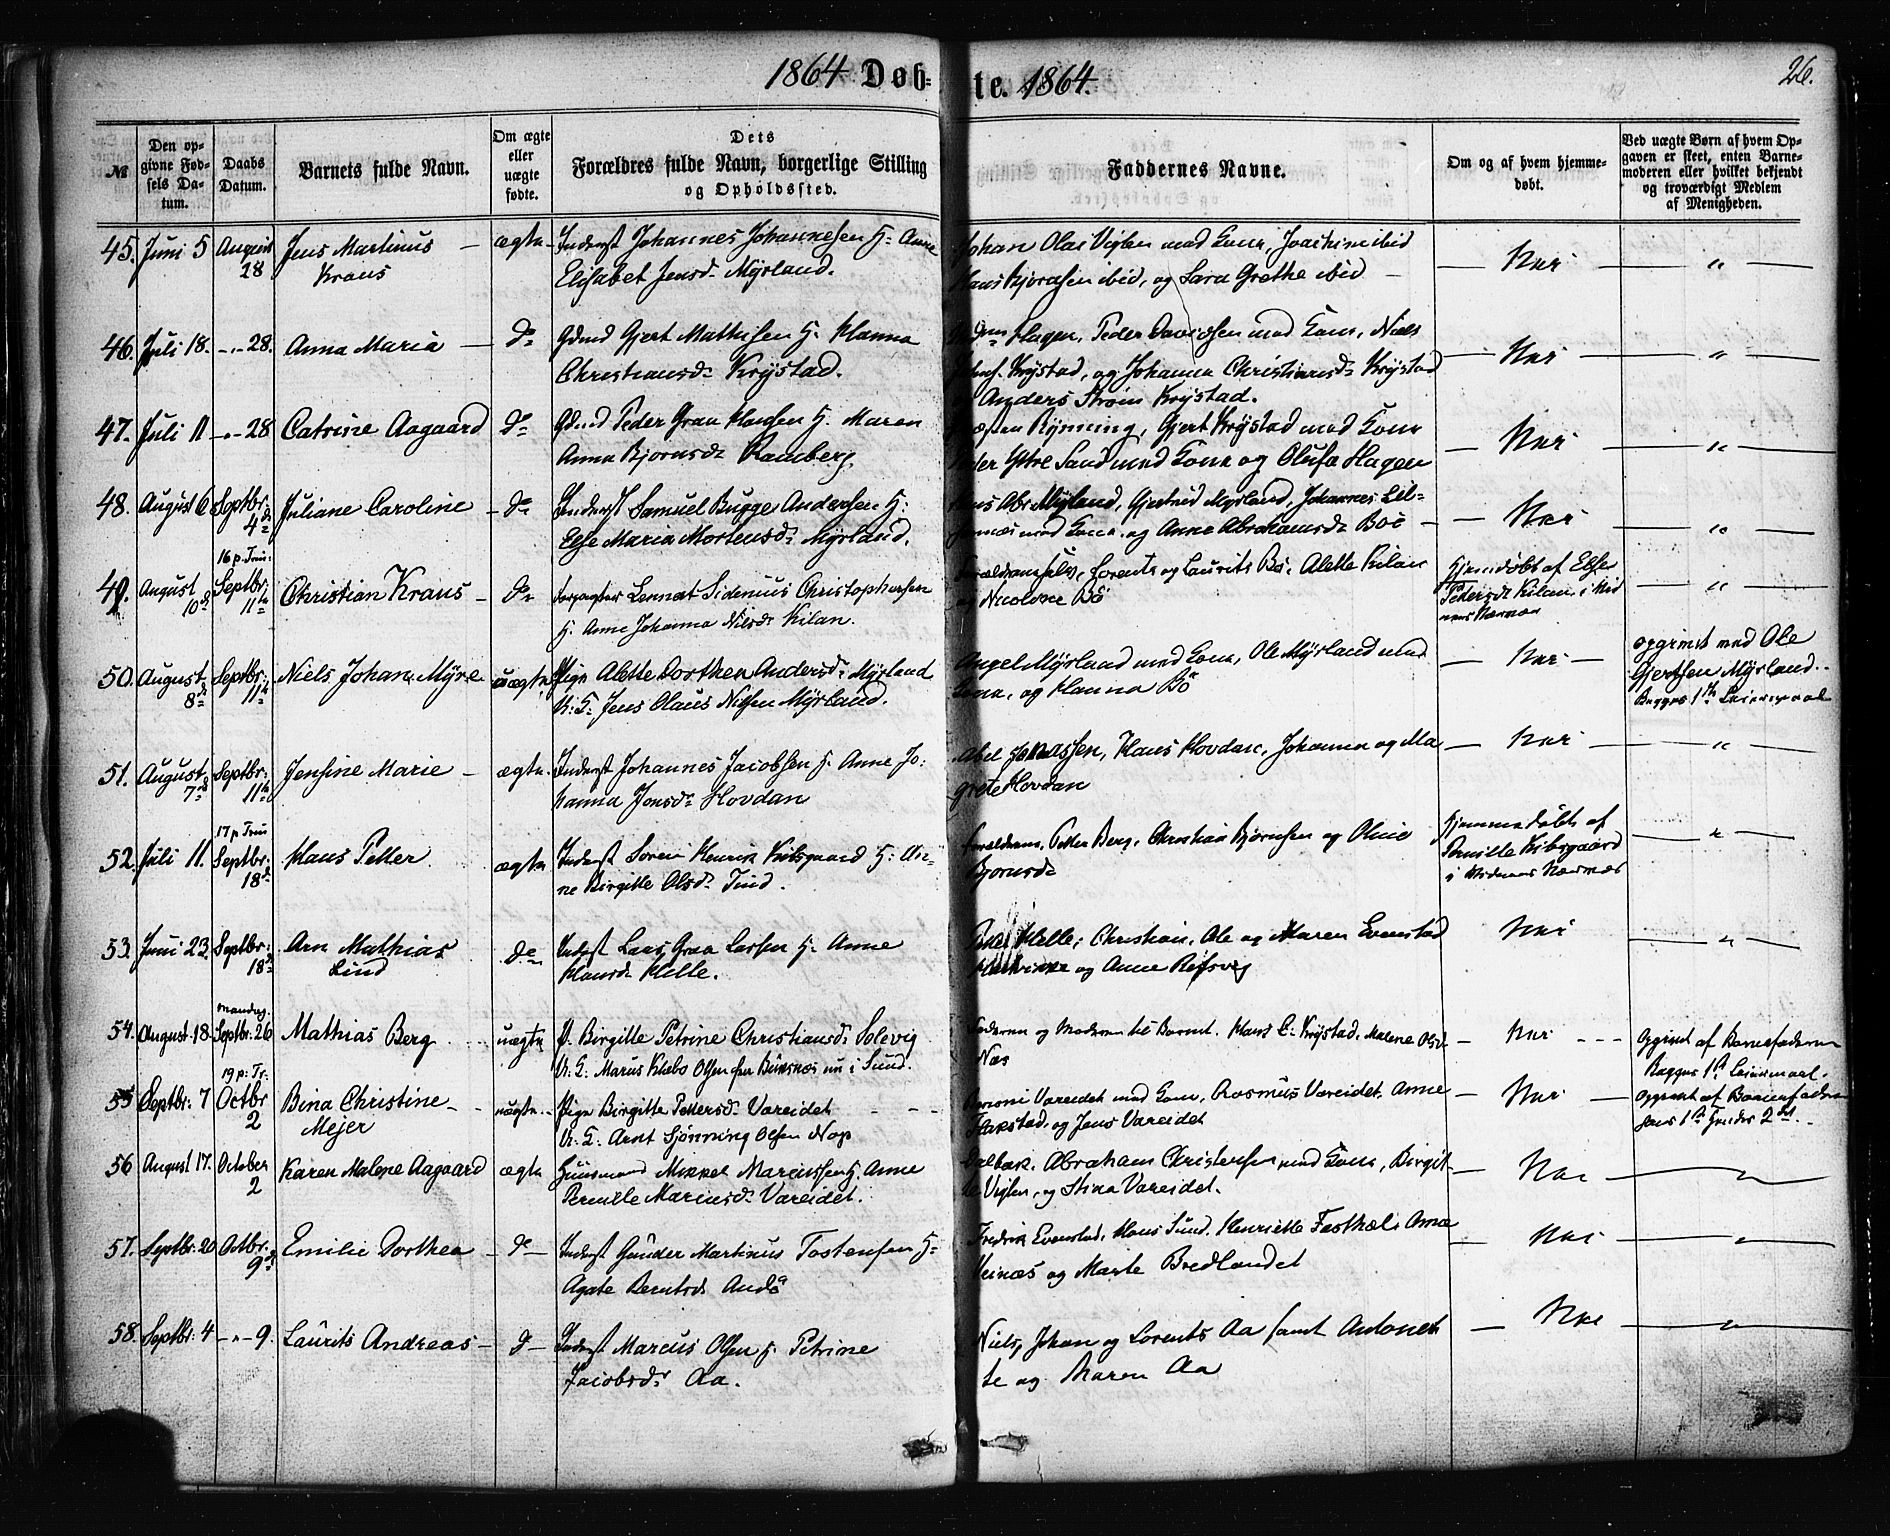 1864 Døb=te. 1864.
26.
№
Den opgivne Fødsels Datum.
Daabs Datum.
Barnets fulde Navn.
Om ægte eller uægte fødte.
Dets Forældres fulde Navn, borgerlige Stilling og Opholdssted.
Faddernes Navne.
Om og af hvem hjemmedøbt.
Ved uægte Børn af hvem Opgaven er skeet, enten Barnemoderen eller hvilket bekjendt og troværdigt Medlem af Menigheden.
45. Juni 5 August 28 Jens Martinus Kraus — ægte Inderst Johannes Johannesen H: Anne
Elisabet Jensd: Myrland.
Johan Olai Viglen med Kone, Joachim ibid
Hans Kjordsen ibid, og Sara Grethe ibid — Nei — "
46. Juli 18. —"—28. Anna Maria — Do Gdmd Gjert Mathisen H. Hanna
Christiansd: Krystad.
Hagen, Peder Davidsen med Kone, Niels
Krystad, og Johanna Christiansd: Krystad
Anders Strøm Krystad. — Nei — "
47. Juli 11 —"—28 Catrine Aagaard Do Gdmd Peder Grau Hansen H. Maren
Anna Bjornsd: Ramberg.
Rynning, Gjert Krystad med Kone
Peder Ytre Sand med Kone og Olufa Hagen — Nei — "
48. August 6 Septbr: 4de Juliane Caroline — Do Inderst Samuel Bugge Andersen H:
Else Maria Mortensd: Myrland.
Abr. Myrland, Gjertrud Myrland, Johannes Lil=
med Kone, og Anne Abrahamsd: Boe — Nei — "
49. August 10de 16 p. Trin: Septbr: 11te Christian Kraus — Do Forpagter Lennet Sidenius Christophersen
H. Anne Johanna Nilsd: Kilan.
Forældrene selv, Lorents og Laurits Bø, Alette Kilan
og Nicoline Bö
Hjemdøbt af Else
Pedersd: Kilan i Kid
nens Nærvær — "
50. August 8de Septbr: 11te Niels Johan Myre uægte Pige Alette Dorthea Andersd: Myrland
U: G: Jens Olaus Nilsen Myrland.
Angel Myrland med Kone, Ole Myrland med
Kone, og Hanna Bö — Nei —
opgivet med Ole
Gjertsen Myrland.
Begges 1te Leiermaal
51. August 7de Septbr: 11te Jensine Marie — ægte Inderst Johannes Jacobsen H. Anne Jo:
hanna Jonsd: Hovdan
Abel Jonassen, Hans Hovdan, Johanna og Ma
grete Hovdan — Nei — "
52. Juli 11. 17 p Trin Septbr: 18de Hans Petter ægte Inderst Soren Henrik Kibsgaard H: An=
ne Birgitte Olsd: Tind.
Forældrene, Petter Berg, Christian Bjørnsen og Oline
Bjornsd:
Hjemmedøbt af
Pernille Kibsgaard
i Vidners Nærvær — "
53. Juni 23 Septbr: 18de Arn Mathias Lind Do Inderst Lars Graa Larsen H. Anne
Hansd: Helle.
Helle, Christian, Ole og Maren Evenstad
og Anne Refsvig Nei — "
54. August 18 Mandag Septbr: 26 Mathias Berg uægte P. Birgitte Petrine Christiansd: Solevig
U: G: Marus Klebo Olsen fra Buksnæs nu i Sund.
Faderen og Moderen til Barnet. Hans C. Krystad, Malene Olsd:
Næs — Nei — —
Opgivet af Barnefaderen
Begges 1te Leiermaal.
55 Septbr: 7 19 p: Tr: Octbr 2 Bina Christine Mejer — uægte Pige Birgitte Pettersd: Vareidet
U: G: Arnt Sjönning Olsen Nap
Vareidet med Kone, Rasmus Vareidet, Anne
Flakstad, og Jens Vareidet — Nei —
Opgivet af Barnefaderen
hans 1te hendes 2det
56 August 17. October 2 Karen Malene Aagaard ægte Huusmand Mikkel Marcussen H. Anne
Pernille Mariusd: Vareidet.
Dalbak, Abraham Christensen med Kone, Birgit
te Viglen, og Stina Vareidet. — Nei — "
57. Septbr: 20 Octbr: 9de Emilie Dorthea — Do — Inderst Gunder Martinus Tostensen H:
Agate Berntsd: Andø
Fredrik Evenstad, Hans Sund, Henriette Festhæl, Anna
Veinæs og Marte Bredlandet — Nei — "
58. Septbr: 4 —"—9. Laurits Andreas — Do — Inderst Marcus Olsen H. Petrine
Jacobsd: Aa.
Niels, Johan og Lorents Aa samt Antonet
te og Maren Aa — Nei — "